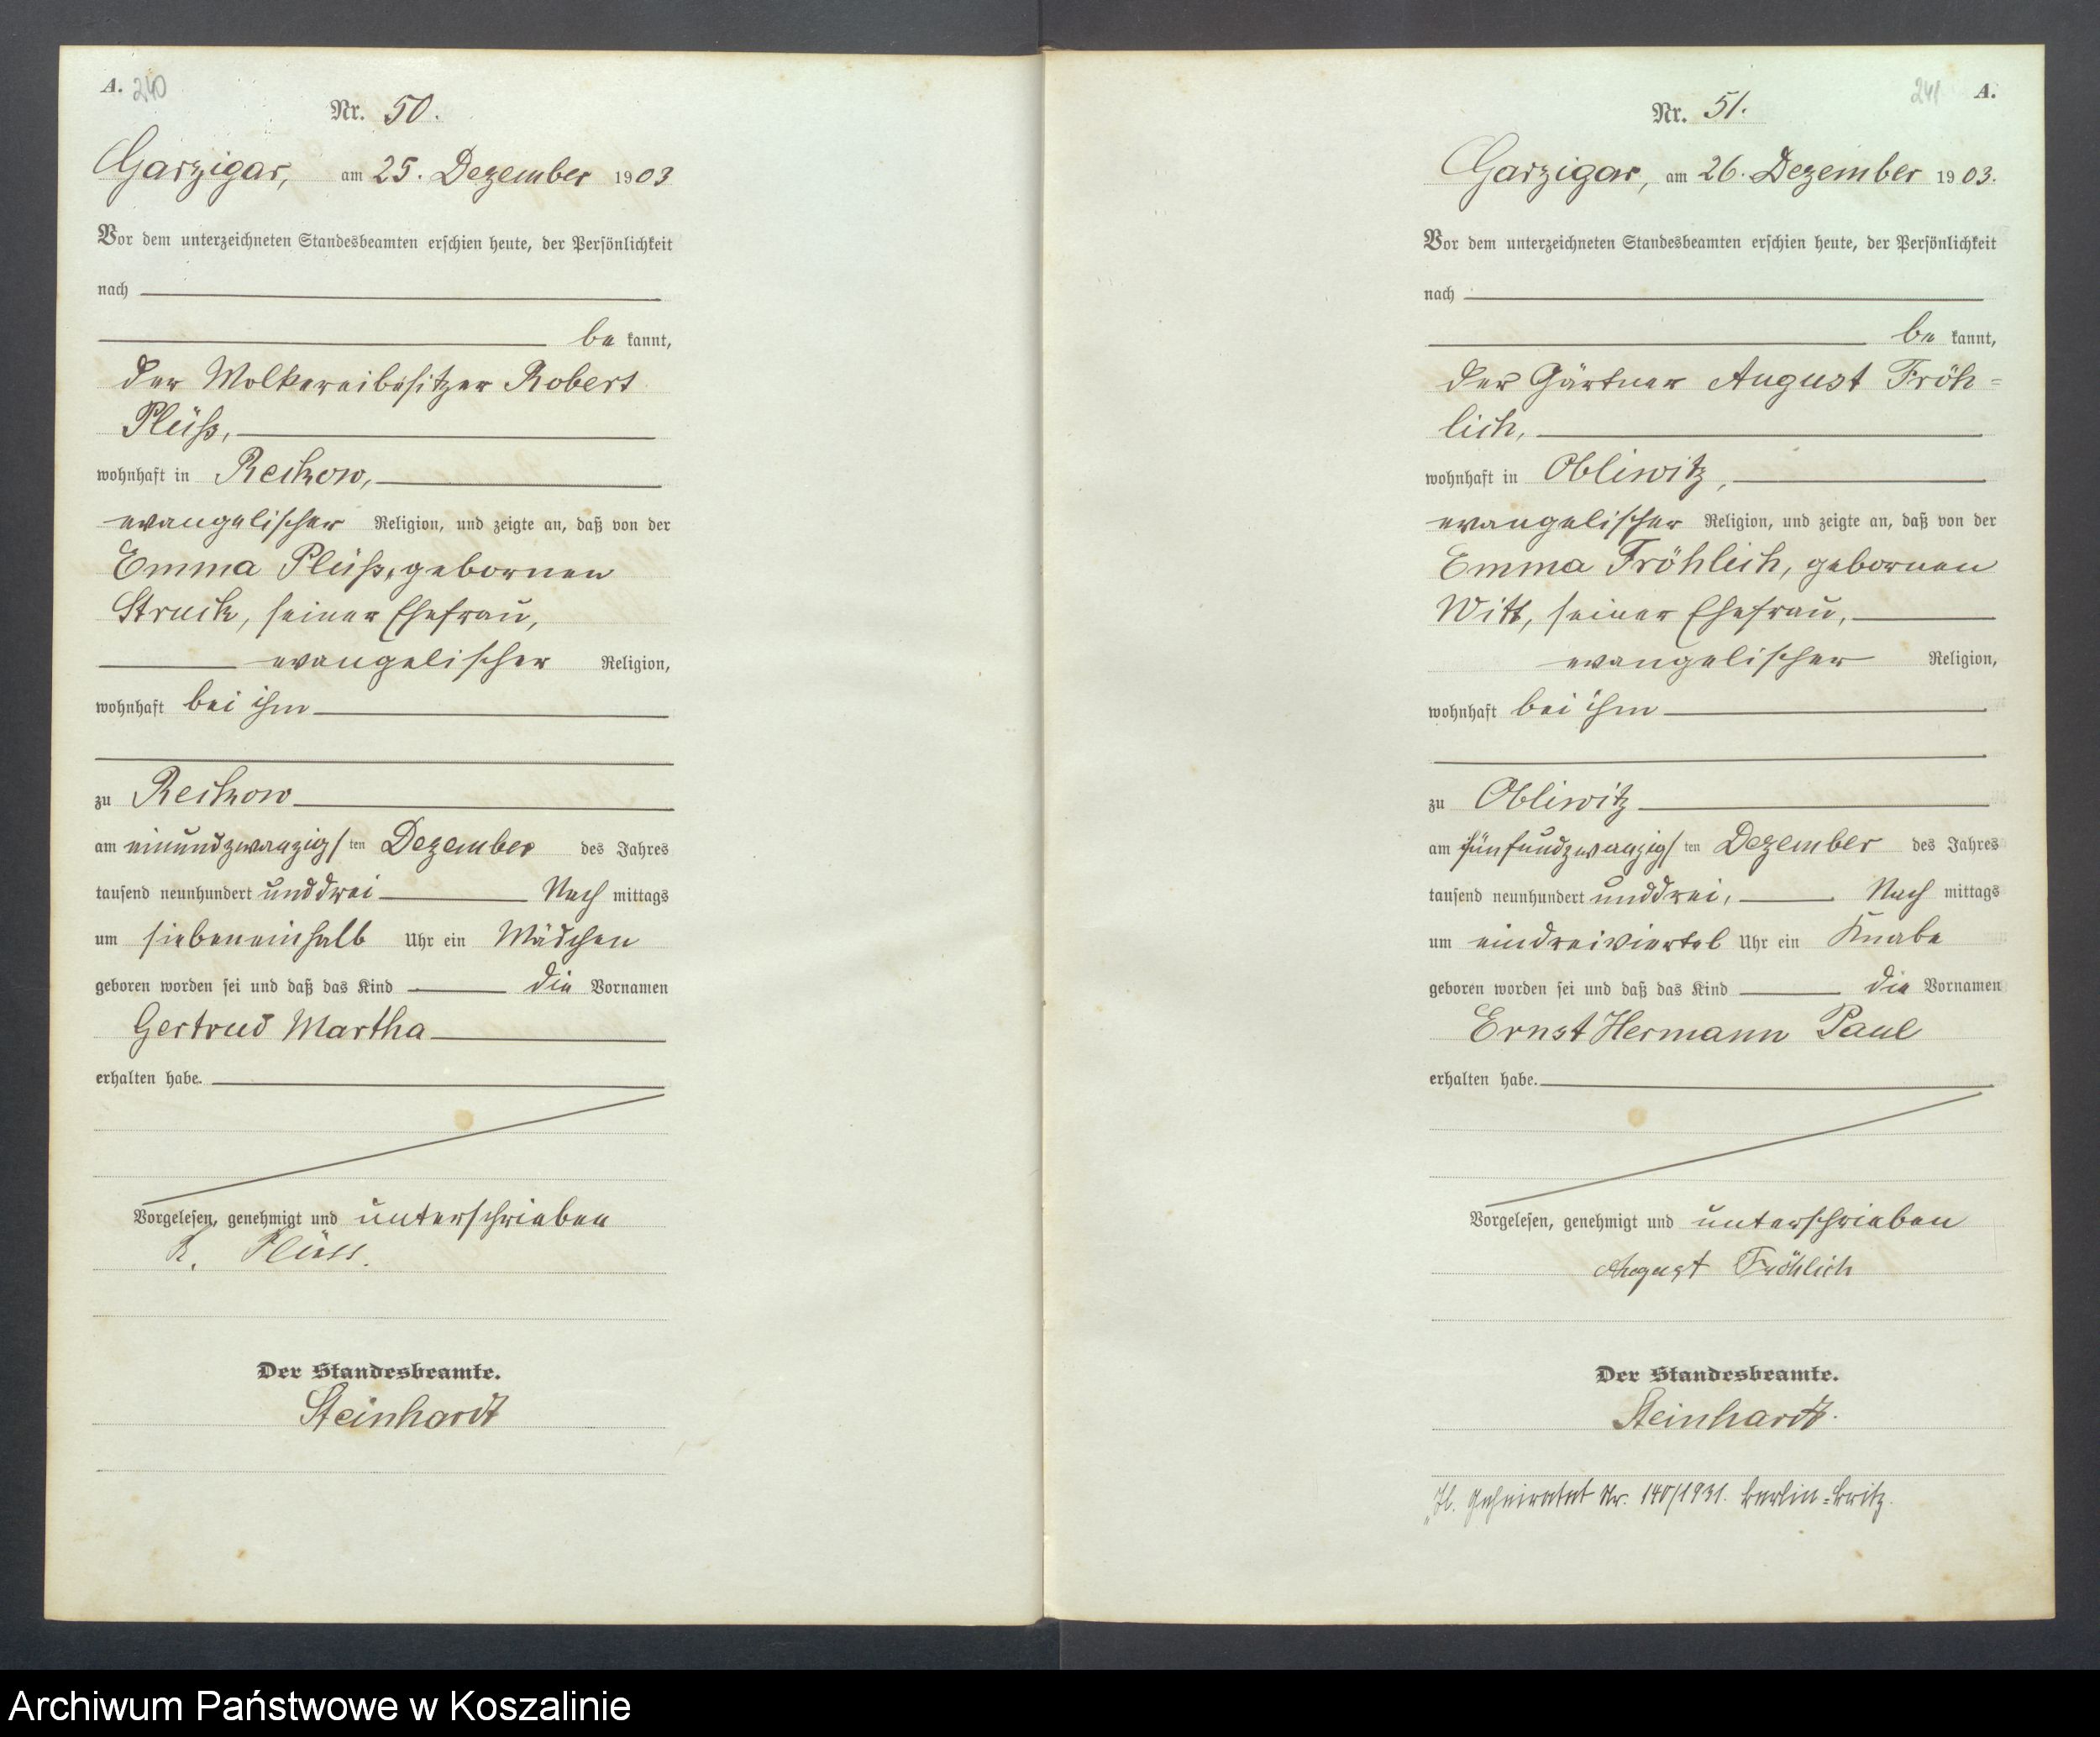 A. 240
Nr. 50.
Garzigar, am 25. Dezember 1903
Vor dem unterzeichneten Standesbeamten erschien heute, der Persönlichkeit
nach
be kannt,
der Molkereibesitzer Robert
Plüß,
wohnhaft in Reckow,
evangelischer Religion, und zeigte an, daß von der
Emma Plüß, gebornen
Struck, seiner Ehefrau,
evangelischer Religion,
wohnhaft bei ihm
zu Reckow
am einundzwanzigs ten Dezember des Jahres
tausend neunhundert unddrei Nach mittags
um siebeneinhalb Uhr ein Mädchen
geboren worden sei und daß das Kind die Vornamen
Gertrud Martha
erhalten habe.
Vorgelesen, genehmigt und unterschrieben
R. Plüss.
Der Standesbeamte.
Steinhardt
241 A.
Nr. 51.
Garzigar, am 26. Dezember 1903.
Vor dem unterzeichneten Standesbeamten erschien heute, der Persönlichkeit
nach
be kannt,
der Gärtner August Fröh=
lich,
wohnhaft in Obliwitz,
evangelischer Religion, und zeigte an, daß von der
Emma Fröhlich, gebornen
Witt, seiner Ehefrau,
evangelischer Religion,
wohnhaft bei ihm
zu Obliwitz
am fünfundzwanzigs ten Dezember des Jahres
tausend neunhundert unddrei, Nach mittags
um eindreiviertel Uhr ein Knabe
geboren worden sei und daß das Kind die Vornamen
Ernst Hermann Paul
erhalten habe.
Vorgelesen, genehmigt und unterschrieben
August Fröhlich
Der Standesbeamte.
Steinhardt.
Geheiratet Nr. 140/1931. Berlin=Britz.
Archiwum Państwowe w Koszalinie